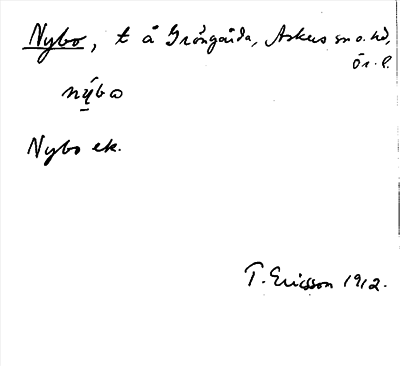 Nybo, t å Gröngärda, Askers sn o. hd,
Ör. l.
nýbo
Nybo ek.
T. Ericsson 1912.